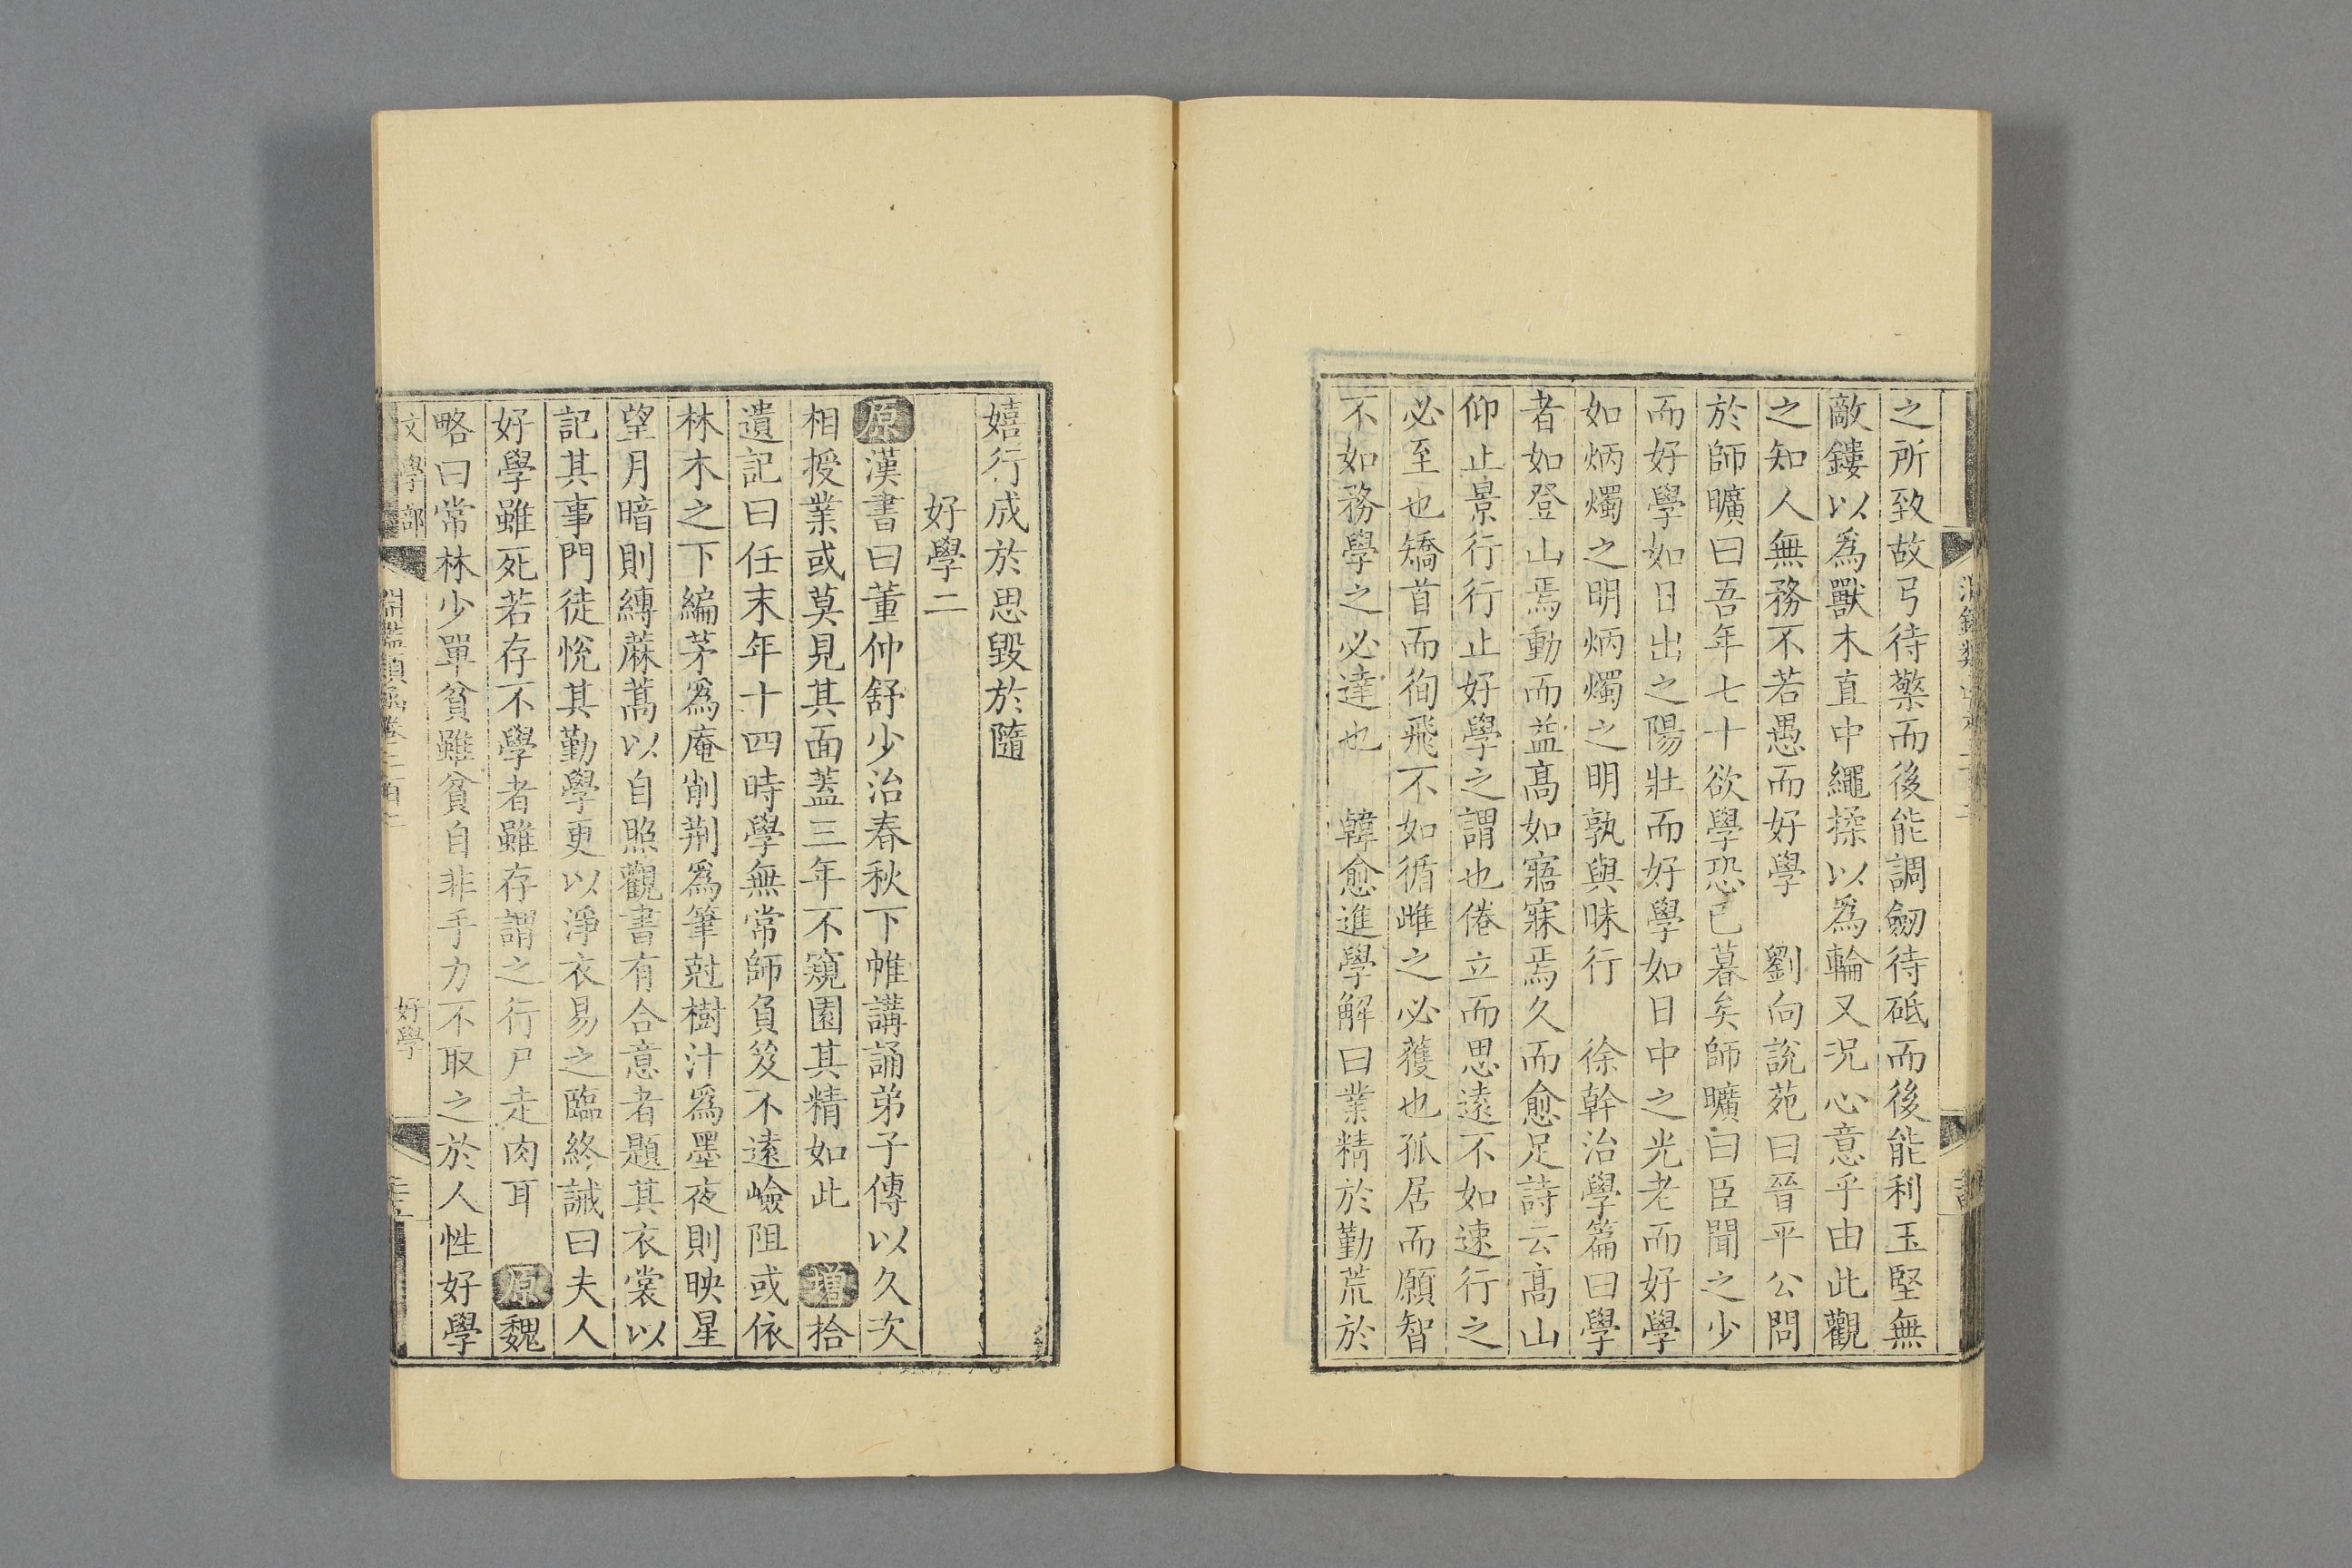 之所致故弓待檠而後能調劒待砥而後能利玉堅無
敵鏤以爲獸木直中繩揉以爲輪又況心意乎由此觀
之知人無務不若愚而好學　劉向説苑曰晉平公問
於師曠曰吾年七十欲學恐已暮矣師曠曰臣聞之少
而好學如日出之陽壯而好學如日中之光老而好學
如炳燭之明炳燭之明孰與昧行　徐幹治學篇曰學
者如登山焉動而益高如寤寐焉久而愈足詩云高山
仰止景行行止好學之謂也倦立而思遠不如速行之
必至也矯首而徇飛不如循雌之必獲也孤居而願智
不如務學之必達也　韓愈進學解曰業精於勤荒於
嬉行成於思毀於隨
好學二
原漢書曰董仲舒少治春秋下帷講誦弟子傳以久次
相授業或莫見其面蓋三年不窺園其精如此　增拾
遺記曰任末年十四時學無常師負笈不遠嶮阻或依
林木之下編茅爲庵削荆爲筆尅樹汁爲墨夜則映星
望月暗則縛蔴蒿以自照觀書有合意者題其衣裳以
記其事門徒悦其勤學更以淨衣易之臨終誡曰夫人
好學雖死若存不學者雖存謂之行尸走肉耳　原魏
略曰常林少單貧雖貧自非手力不取之於人性好學
文學部　淵鑑類函卷二百二　好學